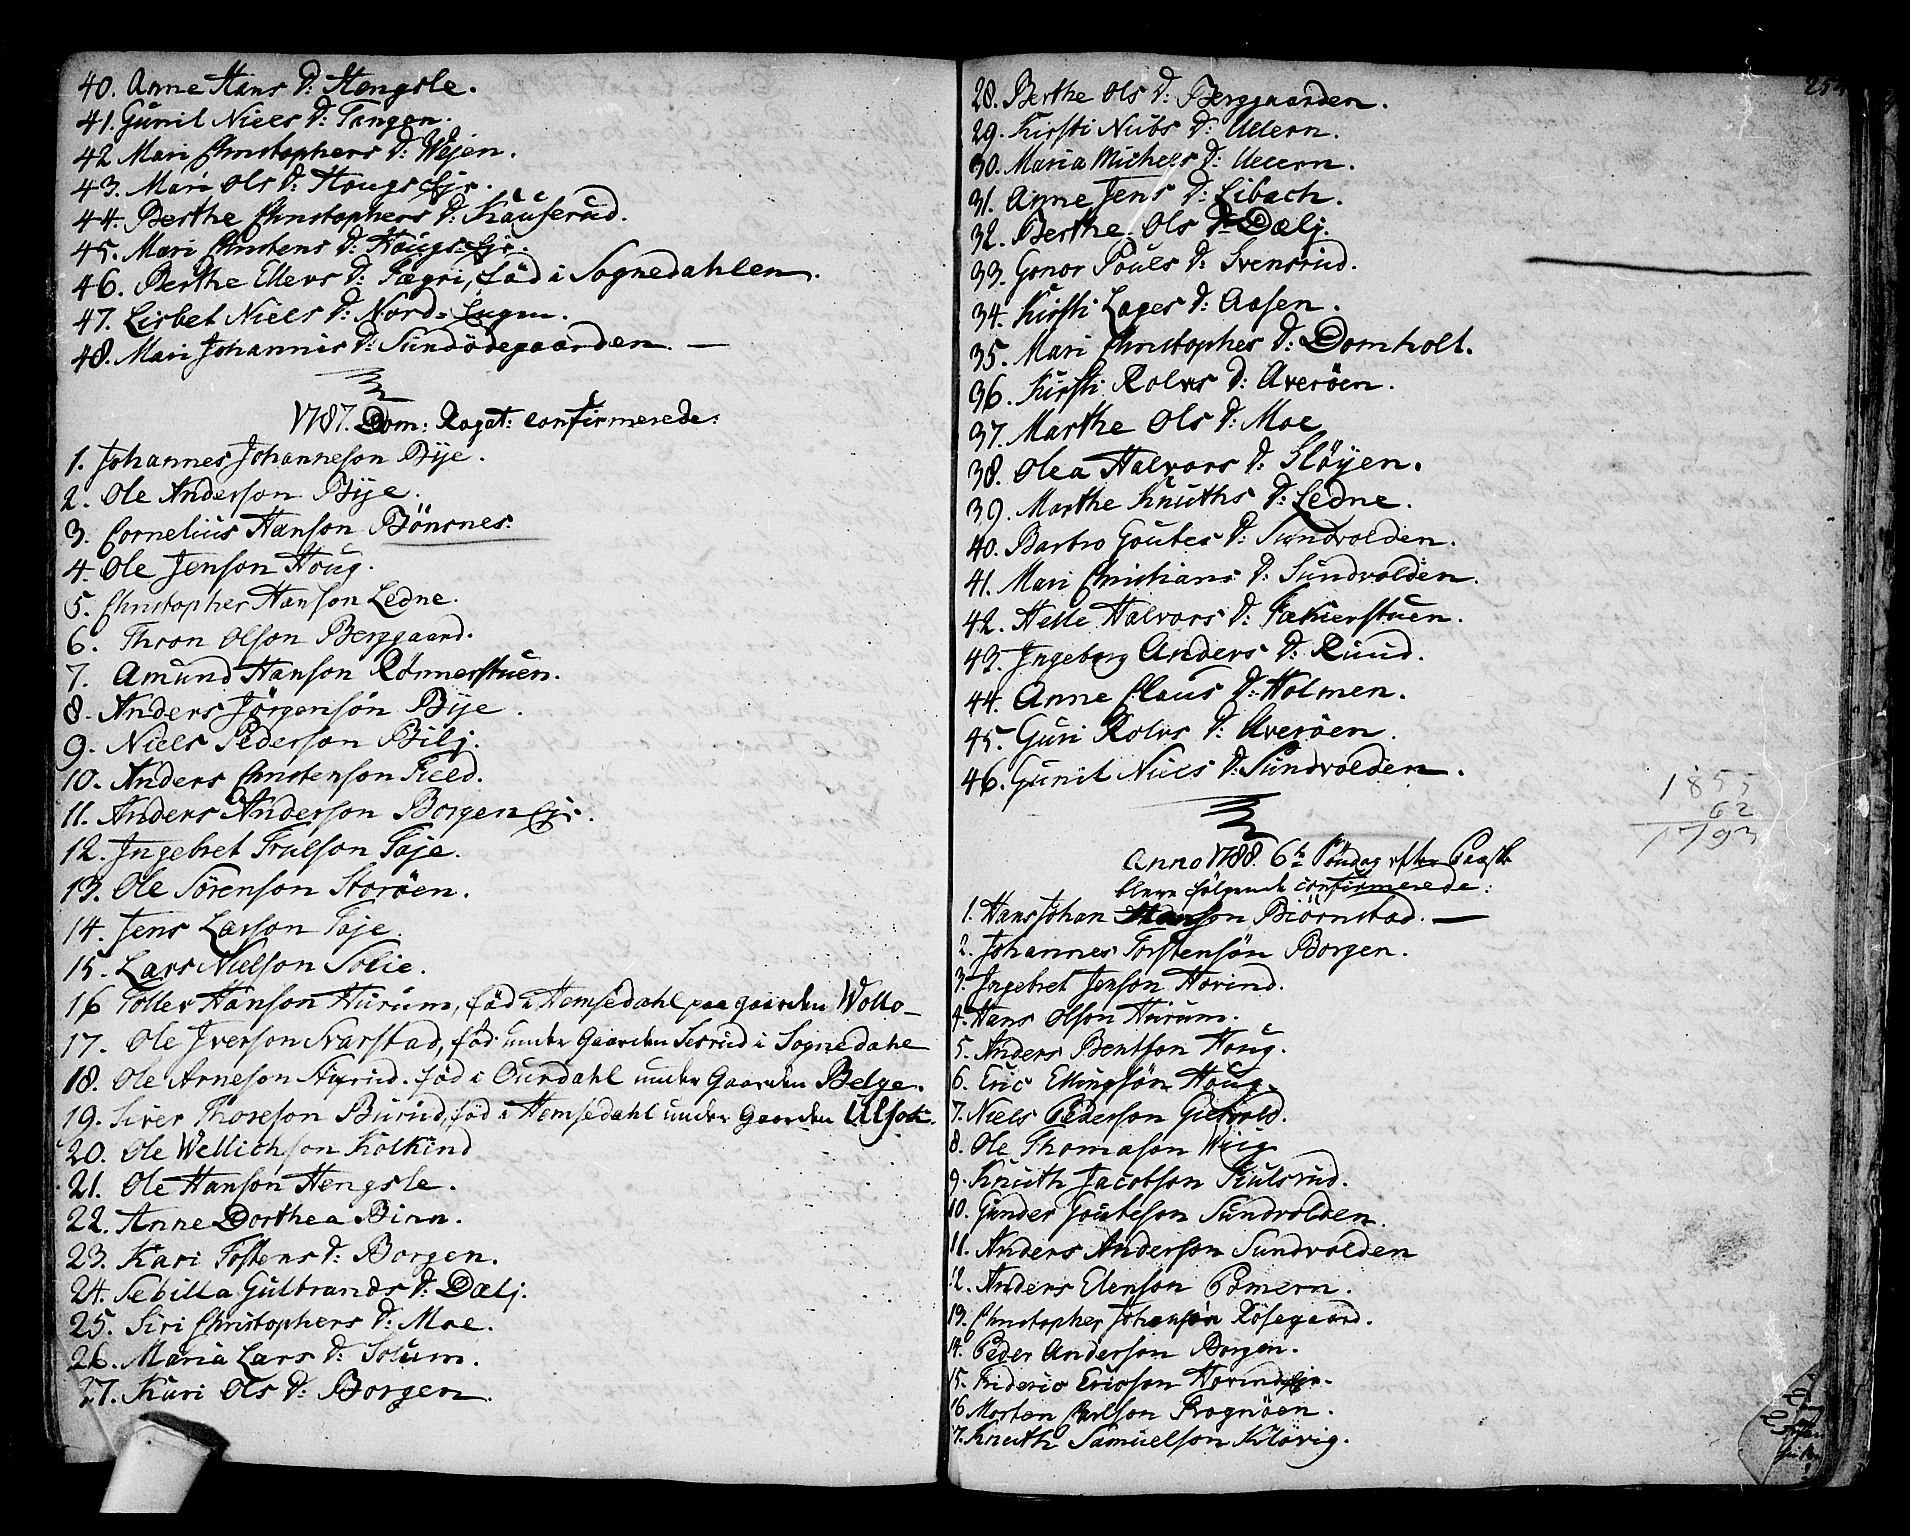 40. Anne Hans D: Hengsle.
41. Gunil Niels D: Tangen.
42 Mari Christophers D: Wejen.
43. Mari Ols D: Hougs Ejr.
44. Berthe Christophers D: Kauserud.
45. Mari Christens D: Hougs Ejr.
46. Berthe Ellevs D: Fægri, föd i Sognedahlen.
47. Lisbet Niels D: Nord-
48. Mari Johannis D: Sundödegaarden. —
1787. Dom: Rogat: confirmerede:
1. Johannes Johanneson Bÿe.
2. Ole Anderson Bÿe.
3. Cornelius Hanson Bönsnes.
4. Ole Jenson Houg.
5. Christopher Hanson Ledne.
6. Thron Olson Berggaard.
7. Amund Hanson Rönnerstuen.
8. Anders Jörgensön Bÿe.
9. Niels Pederson Bilj.
10. Anders Christenson Field.
11. Anders Anderson Borgen Ejr.
12. Ingebret Trulson Foje.
13. Ole Sörenson Storöen.
14. Jens Larson Foje.
15. Lars Nielson Solie.
16 Toller Hanson Hurum, föd i Hemsedahl paa gaarden Wollo—
17. Ole Iverson Svarstad, föd under Gaarden i Sognedahl
18. Ole Arneson föd i Ourdahl under Gaarden Belge.
19. Siver Thoreson Burud, föd i Hemsedahl under Gaarden Ulsok.
20. Ole Wellichson Kolkind
21. Ole Hanson Hengsle.
22. Anne Dorthea Binn.
23. Kari Tostens D: Borgen.
24. Sebilla Gulbrands D: Dælj.
25. Siri Christophers D: Moe.
26. Maria Lars D: Solum.
27. Kari Ols D: Borgen.
254
28. Berthe Ols D: Berggaarden.
29. Kirsti Nubs D: Ullern.
30. Maria Michels D: Ullern.
31. Anne Jens D: Libach.
32. Berthe Ols D: Dælj.
33. Gonor Pouls D: Svensrud.
34. Kirsti Lages D: Aasen.
35. Mari Christophes D: Domholt.
36. Kirsti Rolvs D: Averöen.
37. Marthe Ols D: Moe
38. Olea Halvors D: Slöyen.
39. Marthe Knuths D: Ledne.
40. Barbro Goutes D: Sundvolden.
41. Mari Christians D: Sundvolden.
42. Helle Halvors D: Fækierstuen.
43. Ingeborg Anders D: Ruud.
44. Anne Claus D: Holmen.
45. Guri Rolvs D: Averöen.
46. Gunil Niels D: Sundvolden.
1855
62
1793
Anno 1788. 6te Söndag efter Paaske
bleve fölgende confirmerede:
1. Hans Johan Hanson Biörnstad. —
2. Johannes Torstensön Borgen.
3. Ingebret Jenson Hovind.
4. Hans Olson Hurum.
5. Anders Bentson Houg.
6. Eric Ellingsön Houg.
7. Niels Pederson Gietvold.
8. Ole Thomason Wiig
9. Knuth Jacobson Kiulsrud.
10. Gunder Gouteson Sundvolden.
11. Anders Anderson Sundvolden
12. Anders Elenson Pomern.
13. Christopher Johansön Rösegaard.
14. Peder Anderson Borgen.
15. Frideric Ericson Hovinds Ejr.
16 Morten Carlson Rognöen.
17. Knuth Samuelson Klövig.